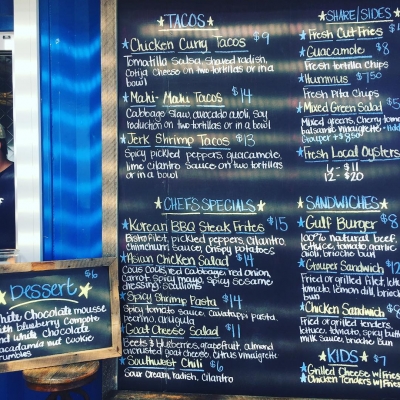 TACOS
Chicken Curry Tacos $9
Tomatillo Salsa, shaved radish,
Cotija Cheese on two tortillas or in a
bowl
Mahi-Mahi Tacos $14
Cabbage slaw, avocado aioli, soy
reduction on two tortillas or in a bowl
Jerk Shrimp Tacos $13
Spicy pickled peppers, guacamole,
lime cilantro sauce on two tortillas
or in a bowl
CHEFS SPECIALS
Korean BBQ Steak Frites $15
Bistro filet, pickled peppers, cilantro
chimmichurri sauce, crispy potatoes
Asian Chicken Salad $14
Cous Cous, red cabbage, red onion,
carrot, spicy mayo, spicy sesame
dressing, scallions
Spicy Shrimp Pasta $14
Spicy tomato sauce, cavatappi pasta,
Arugula
Goat Cheese Salad $11
Beets & blueberries, grapefruit, almond
encrusted goat cheese, citrus vinaigrette
Southwest Chili $6
Sour Cream, radish, cilantro
SHARE/SIDES
Fresh Cut Fries
Guacamole $8
Fresh tortilla Chips
Hummus $7.50
Fresh Pita Chips
Mixed Green Salad
Mixed greens, Cherry
balsamic vinaigrette
Grouper + $8.50
Fresh Local Oysters
6 - $11
12 - $20
SANDWICHES
Gulf Burger $8
100% natural beef,
lettuce, tomato, garlic
aioli, brioche bun
Grouper Sandwich $12
Fried or grilled filet,
tomato, lemon dill, brioche
bun
Chicken Sandwich $8
Fried or grilled tenders,
lettuce, tomato, spicy
milk sauce, brioche bun
KIDS $7
Grilled Cheese w/Fries
Chicken Tenders w/Fries
$6
Dessert
White Chocolate mousse
with blueberry Compote
and white chocolate
macadamia nut cookie
crumbles